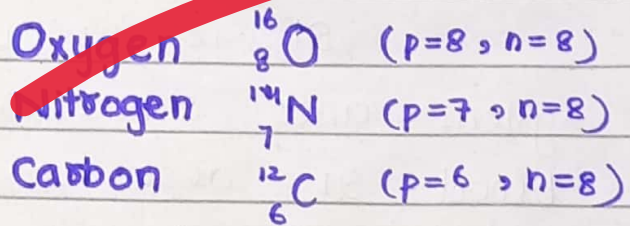 Oxygen ¹⁶₈O (p=8, n=8)
Nitrogen ¹⁴₇N (p=7, n=8)
Carbon ¹²₆C (p=6, n=8)